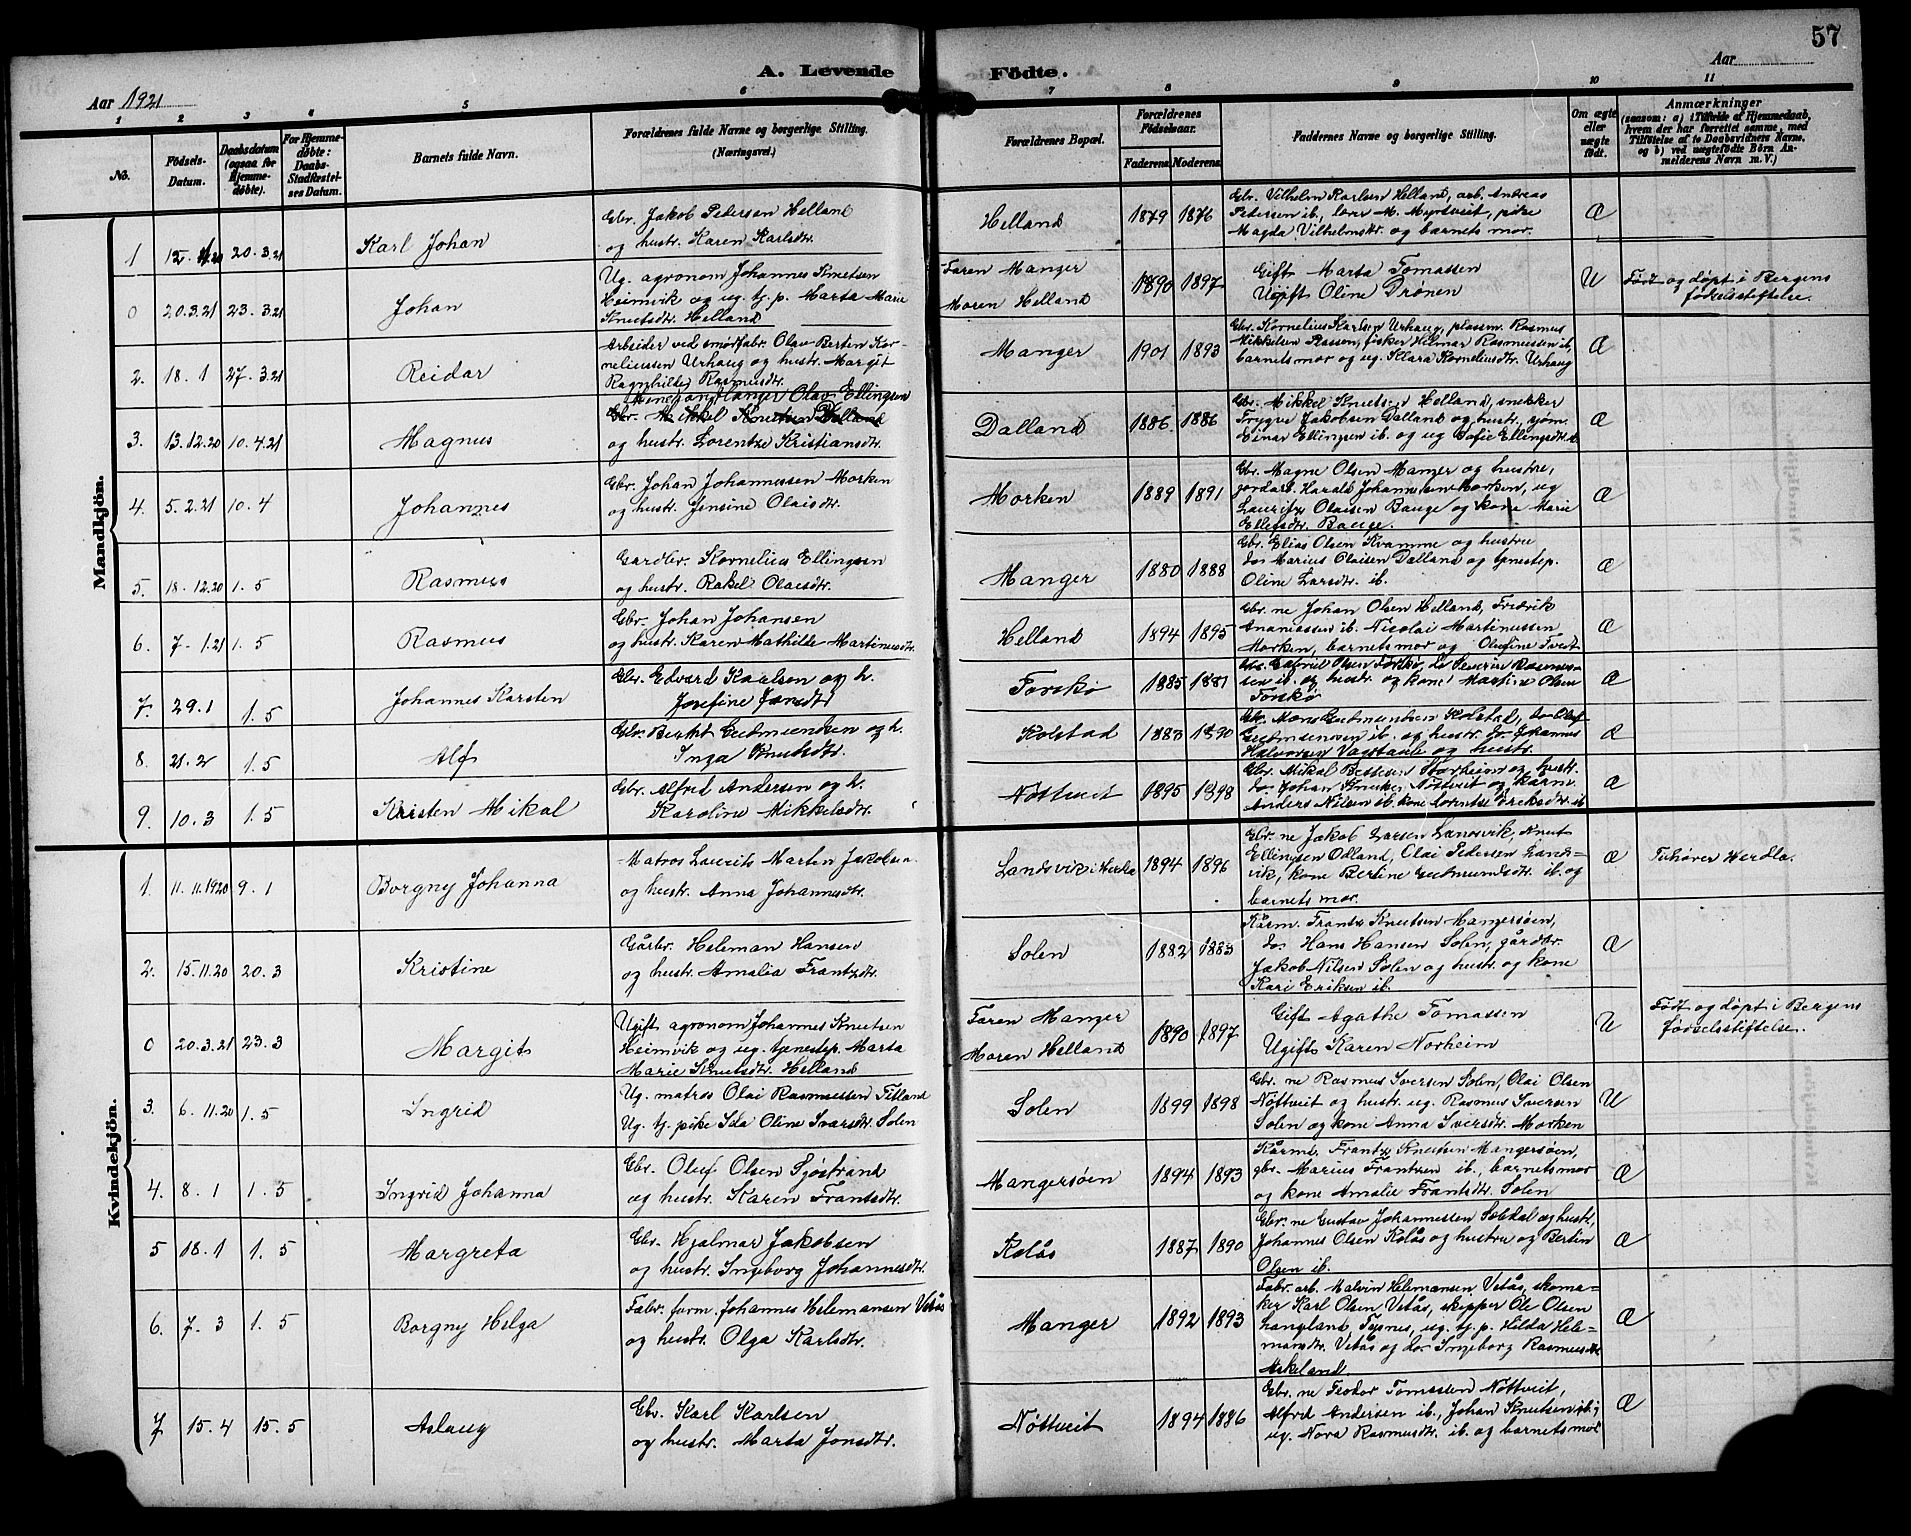 57
A. Levende Födte.
Aar 1921
Aar
1 2 3 4 5 6 7 8 9 10 11
No.
Födsels-Datum.
Daabsdatum (ogsaa for Hjemmedöbte).
For Hjemmedöbte: Daabs-Stadfæstelses Datum.
Barnets fulde Navn.
Forældrenes fulde Navne og borgerlige Stilling. (Næringsvei.)
Forældrenes Bopæl.
Forældrenes Födselsaar.
Faderens. Moderens.
Faddernes Navne og borgerlige Stilling.
Om ægte eller uægte födt.
Anmærkninger
(saasom: a) i Tilfælde af Hjemmedaab, hvem der har forrettet samme, med Tilföielse af to Daabsvidners Navne, og b) ved uægtefödte Börn Anmelderens Navn m. V.)
Mandkjön.
1 20.3.21 Karl Johan
Gbr. Jakob Pedersen Helland
og hustr. Karen Karlsdtr.
Helland 1879 1876
Gbr. Vilhelm Karlsen Helland, arb. Andreas
Pedersen ib., lærer M. Myrtveit, pike
Magda Vilhelmsdtr. og barnets mor.
Æ
0 20.3.21 23.3.21 Johan
Ug. agronom Johannes Knutsen
Heimvik og ug. tj. p. Marta Marie
Knutsdtr. Helland
Faren Manger
Moren Helland
1890 1897
Gift Marta Tomassen
Ugift Oline Drönen
U
Født og døpt i Bergens
fødselsstiftelse.
2. 18.1 27.3.21 Reidar
Arbeider ved smørfabr. Olav Bertin Kor-
neliussen Urhaug og hustr. Margit
Ragnhilda Rasmusdtr.
Manger 1901 1893
Gbr. Kornelius Karlsen Urhaug, plassm. Rasmus
Mikkelsen Rassen, fisker Hilmar Rasmussen ib.
barnets mor og ug. Klara Korneliusdtr. Urhaug
Æ
3. 13.12.20 10.4.21 Magnus
Olav Ellingsen
Gbr. Mikkel Knutsen Helland
og hustr. Lorentze Kristiansdtr.
Dalland 1886 1886
Gbr. Mikkel Knutsen Helland, snekker
Trygve Jakobsen Dalland og hustr., sjøm.
Einar Ellingsen ib. og ug Sofie Ellingsdtr. ib
Æ
4. 5.2.21 10.4 Johannes
Gbr. Johan Johannessen Morken
og hustr. Jensine Olaisdtr.
Morken 1889 1891
Gbr. Magne Olsen Manger og hustru,
jordarb. Harald Johannessen Morken, ug
Lauritz Olaisen Bauge og kone Marie
Ellefsdtr. Bauge.
Æ
5. 18.12.20 1.5 Rasmus
Gardbr. Kornelius Ellingsen
og hustr. Rakel Olaisdtr.
Manger 1880 1888
Gbr. Elias Olsen Kvamme og hustru
do. Marius Olaisen Dalland og tjenestep.
Oline Larsdtr. ib.
Æ
6. 7.1.21 1.5 Rasmus
Gbr. Johan Johansen
og hustr. Karen Mathilde Martinusdtr.
Helland 1894 1895
Gbr. ne Johan Olsen Helland, Fredrik
Ananiassen ib. Nicolai Martinussen
Morken, barnets mor og Olufine Tveit
Æ
7. 29.1 1.5 Johannes Karsten
Gbr. Edvard Knutson og h.
Josefine Jonsdtr
Forskø 1885 1881
Gbr. Gabriel Olsen Forskø, do Severin Rasmus-
sen ib. og hustr. og kone Martine Olsen
Forskø
Æ
8. 21.2 1.5 Alf
Gbr. Berent Gudmundsen og h.
Inga Knutsdtr.
Kolstad 1883 1890
Gbr. Mons Gudmundsen Kolstad, do Oluf
Gudmundsen ib. og hustr. do Johannes
Halvorsen Vagstaule og hustr.
Æ
9. 10.3 1.5 Kristen Mikal
Gbr. Alfred Andersen og h.
Karoline Mikkelsdtr.
Nøttveit 1895 1898
Gbr. Mikal Bessesen og hustr.
do. Johan Knutsen Nöttveit og kårm.
Anders Nilsen ib. kone Lorentse Areksdtr. ib
Æ
Kvindekjön.
1. 11.11.1920 9.1 Borgny Johanna
Matros Laurits Marten Jakobsen
og hustr. Anna Johannesdtr.
Landsvik i Herdla 1894 1896
Gbr. ne Jakob Larsen Landsvik, Knut
Ellingsen Odland, Olai Pedersen Lands-
vik, kone Bertine Gudmundsdtr. ib. og
barnets mor.
Æ
Tilhører Herdla.
2. 15.11.20 20.3 Kristine
Gårbr. Heleman Hansen
og hustr. Amalia Frantzdtr.
Solen 1882 1883
Kårm. Frantz Knutsen Mangersøen,
do. Hans Hansen Solen, gårdbr.
Jakob Nilsen Solen og hustr. og kone
Kari Eriksen ib.
Æ
0 20.3.21 23.3 Margit
Ugift agronom Johannes Knutsen
Heimvik og ug. tjenestep. Marta
Marie Knutsdtr. Helland
Faren Manger
Moren Helland
1890 1897
Gift Agathe Tomassen
Ugift Karen Norheim
U
Født og døpt i Bergens
fødselsstiftelse.
3. 6.11.20 1.5 Ingrid
Ug. matros Olai Rasmussen Titland
Ug. tj. pike Ida Oline Ivarsdtr. Solen
Solen 1899 1898
Gbr. ne Rasmus Iversen Solen, Olai Olsen
Nöttveit og hustr. ug. Rasmus Iversen
Solen og kone Anna Iversdtr. Morken
U
4. 8.1 1.5 Ingrid Johanna
Gbr. Oluf Olsen Sjøstrand
og hustr. Karen Frantsdtr.
Mangersøen 1894 1893
Kårmd. Frantz Knutsen Mangersøen,
gbr. Marius Frantzen ib., barnets mor
og kone Amalie Frantsdtr. Solen
Æ
5 18.1 1.5 Margreta
Gbr. Hjalmar Jakobsen
og hustr. Ingeborg Johannesdtr.
Kolås 1887 1890
Gbr. ne Gustav Johannessen Soldal og hustr,
Johannes Olsen Kolås og hustru og Bertin
Olsen ib.
Æ
6. 7.3 1.5 Borgny Helga
Fabr. form. Johannes Helemansen Vetås
og hustr. Olga Karlsdtr.
Manger 1892 1893
Fabr. arb. Malvin Helemansen Vetås, skoma-
ker Karl Olsen Vetås, skipper Ole Olsen
hangland Fosnes, ug. tj. p. Hilda Hele-
mansdtr. Vetås og do Ingeborg Rasmusdtr
Askeland.
Æ
7 15.4 15.5 Aslaug
Gbr. Karl Karlsen
og hustr. Marta Jonsdtr.
Nøttveit 1894 1886
Gbr. ne Teodor Tomassen Nöttveit,
Alfred Andersen ib., Johan Knutsen ib.,
ug. Nora Rasmusdtr. ib. og barnets mor
Æ